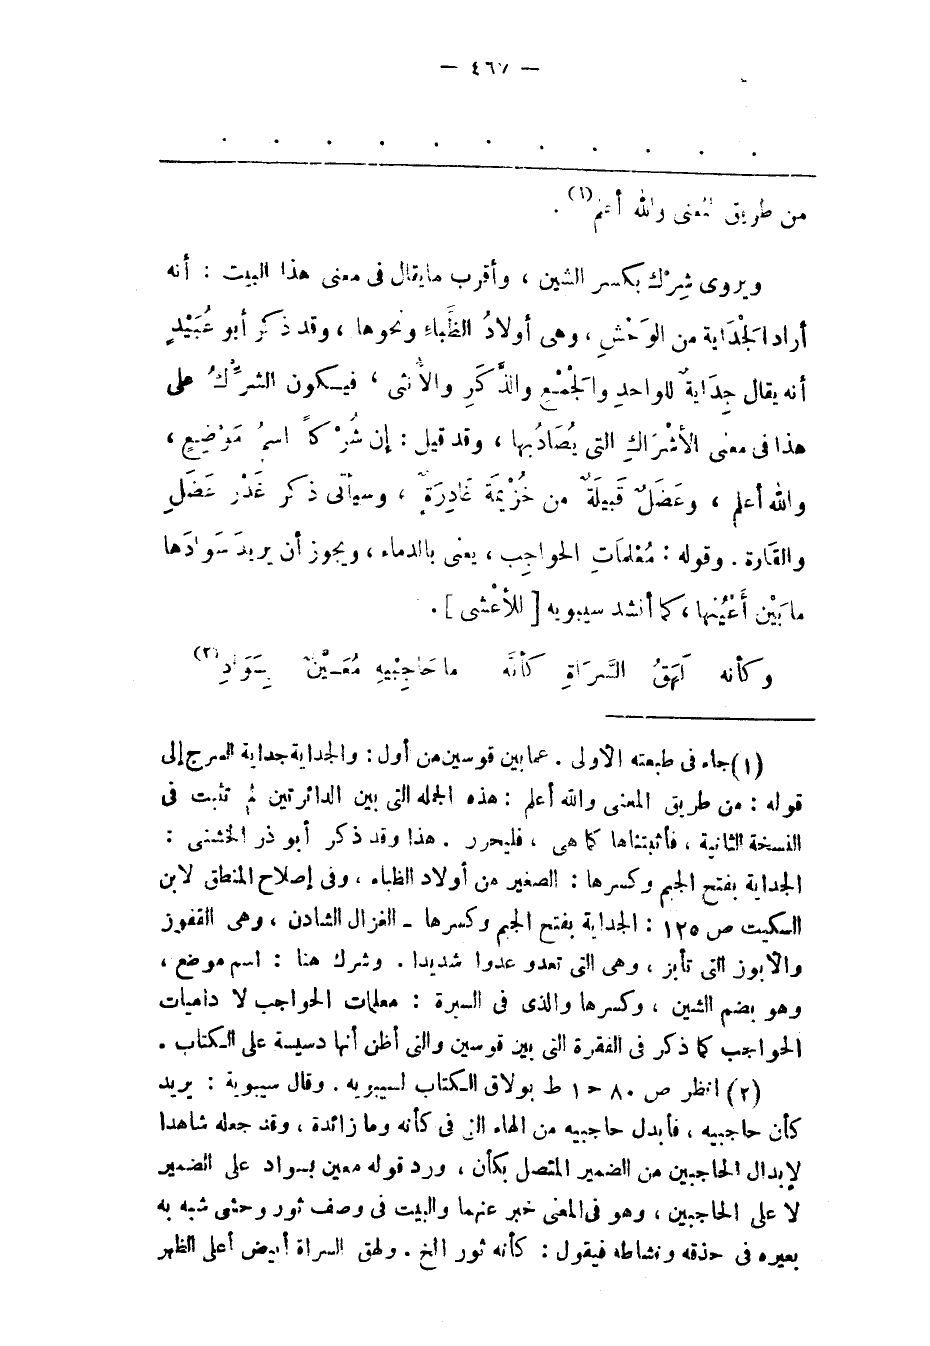 — ٤٦٧ —
. . . . . . . . . . .
من طريق المعنى والله أعلم(١) .
ويروى شِرْك بكسر الشين ، وأقرب مايقال فى معنى هذا البيت : أنه
أراد الجْدَاية من الوَحْشِ ، وهى أولادُ الظِّباءِ ونحوها ، وقد ذكر أبو عُبَيْدٍ
أنه يقال جِدَايةٌ للواحدِ والجْمْعِ والذَّكَرِ والأنثى ، فيكون الشركُ على
هذا فى معنى الأشْرَاكِ التى يُصَادُبها ، وقد قيل : إن شُرْكاً اسمُ مَوْضِعٍ ،
والله أعلم ، وعَضَلٌ قَبيلَةٌ من خُزَيْمَة غَادِرَةٌ ، وسيأتى ذكر غَدْر عَضَلٍ
والقَارة . وقوله : مُعْلماَتِ الحواجِب ، يعنى بالدماء ، ويجوز أن يريدَ سَوادَها
ما بَيْن أَعْيُنها ، كما أنشد سيبويه [ للأعْشى ] .
وكأنه لَهِقُ السَّرَاةِ كأنّه ما حَاجِبْيهِ مُعَيَّنٌ بِسَوَادِ(٢)
(١) جاء فى طبعته الأولى . عمابين قوسين من أول : والجداية جداية السرج إلى
قوله : من طريق المعنى والله أعلم : هذه الجمله التى بين الدائرتين لم تثبت فى
النسخة الثانية ، فأثبتناها كما هى ، فليحرر . هذا وقد ذكر أبو ذر الخشنى :
الجداية بفتح الجيم وكسرها : الصغير من أولاد الظباء ، وفى إصلاح المنطق لابن
السكيت ص ١٢٥ : الجداية بفتح الجيم وكسرها ـ الغزال الشادن ، وهى القفوز
والأبوز التى تأبز ، وهى التى تعدو عدوا شديدا . وشرك هنا : اسم موضع ،
وهو بضم الشين ، وكسرها والذى فى السيرة : معلمات الحواجب لا داميات
الحواجب كما ذكر فى الفقرة التى بين قوسين والتى أظن أنها دسيسة على الكتاب .
(٢) انظر ص ٨٠ ح ١ ط بولاق الكتاب لسيبويه . وقال سيبوية : يريد
كأن حاجبيه ، فأبدل حاجبيه من الهاء التى فى كأنه وما زائدة ، وقد جعله شاهدا
لإبدال الحاجبين من الضمير المتصل بكأن ، ورد قوله معين بسواد على الضمير
لا على الحاجبين ، وهو فى المعنى خبر عنهما والبيت فى وصف ثور وحشى شبه به
بعيره فى حذقه ونشاطه فيقول : كأنه ثور الخ . ولهق السراة أبيض أعلى الظهر